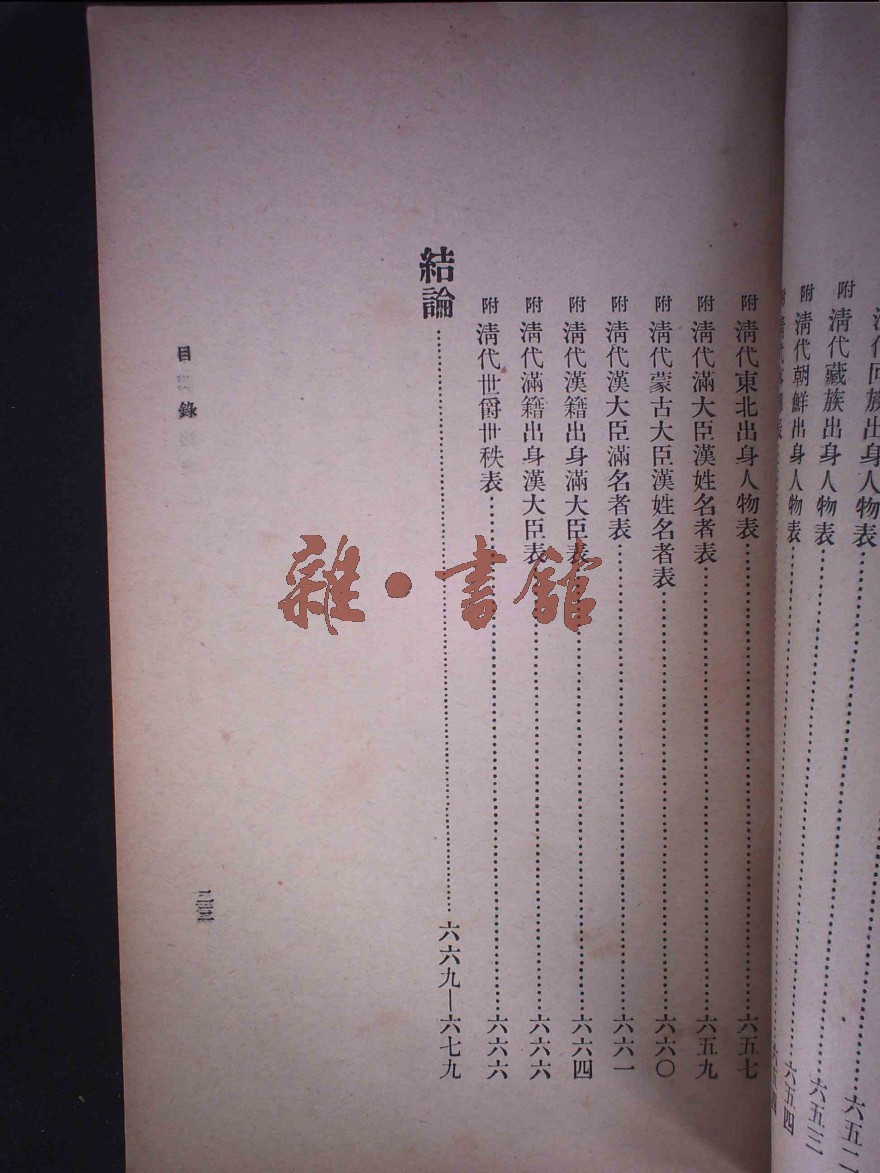 清代回族出身人物表……六五二
附 清代藏族出身人物表……六五三
附 清代朝鮮出身人物表……六五四
附 清代東北出身人物表……六五七
附 清代滿大臣漢姓名者表……六五九
附 清代蒙古大臣漢姓名者表……六六〇
附 清代漢大臣滿名者表……六六一
附 清代漢籍出身滿大臣表……六六四
附 清代滿籍出身漢大臣表……六六六
附 清代世爵世秩表……六六六
結論……六六九—六七九
目錄
雜·書館